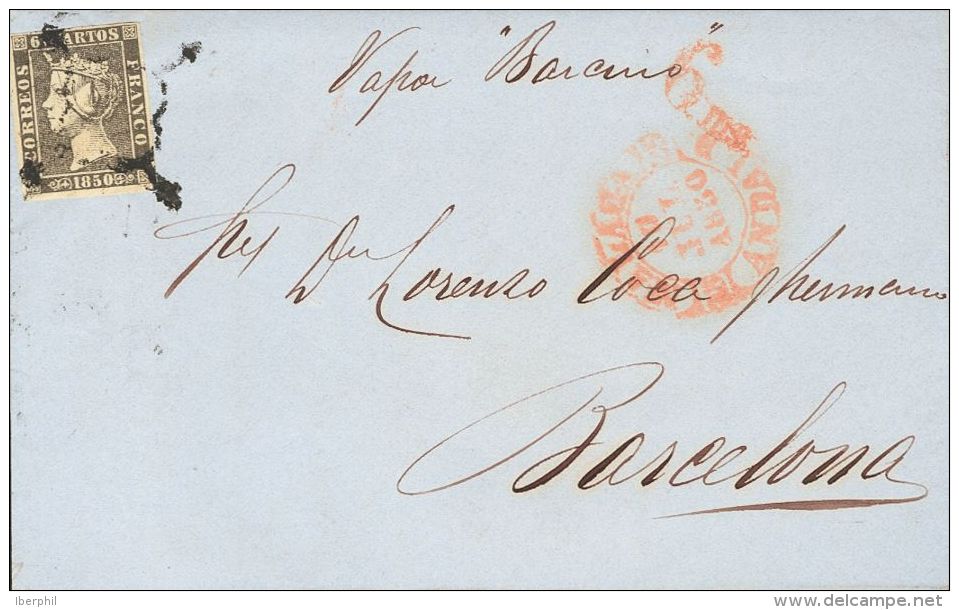 6 CUARTOS
CORREOS
FRANCO
1850
Vapor "Barcino"
6 Rs
D. Lorenzo Coca y hermano
Barcelona
Iberphil
www.delcampe.net